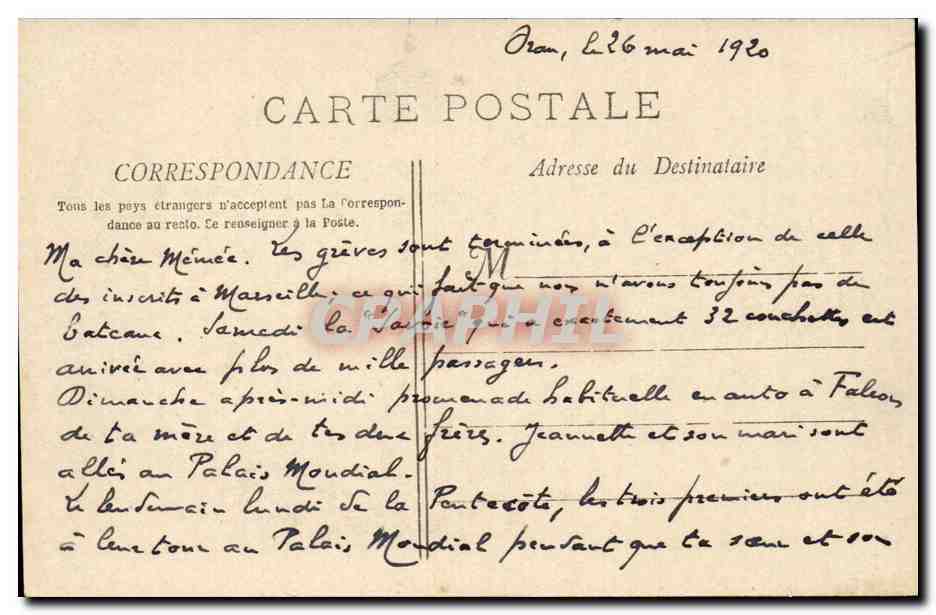 Oran, le 26 mai 1920
CARTE POSTALE
CORRESPONDANCE
Adresse du Destinataire
Tous les pays étrangers n'acceptent pas La Correspon-
dance au recto. Se renseigner à la Poste.
M
Ma chère Mémée. Les grèves sont terminées, à l'exception de celle
des inscrits à Marseille : ce qui fait que nous n'avons toujours pas de
bateaux. Samedi la "Savoie" qui a exactement 32 couchettes est
arrivée avec plus de mille passagers.
Dimanche après-midi promenade habituelle en auto à Falcon
de ta mère et de tes deux frères. Jeannette et son mari sont
allés au Palais Mondial.
Le lendemain lundi de la Pentecôte, les trois premiers ont été
à leur tour au Palais Mondial pendant que ta sœur et son
CPAPHIL